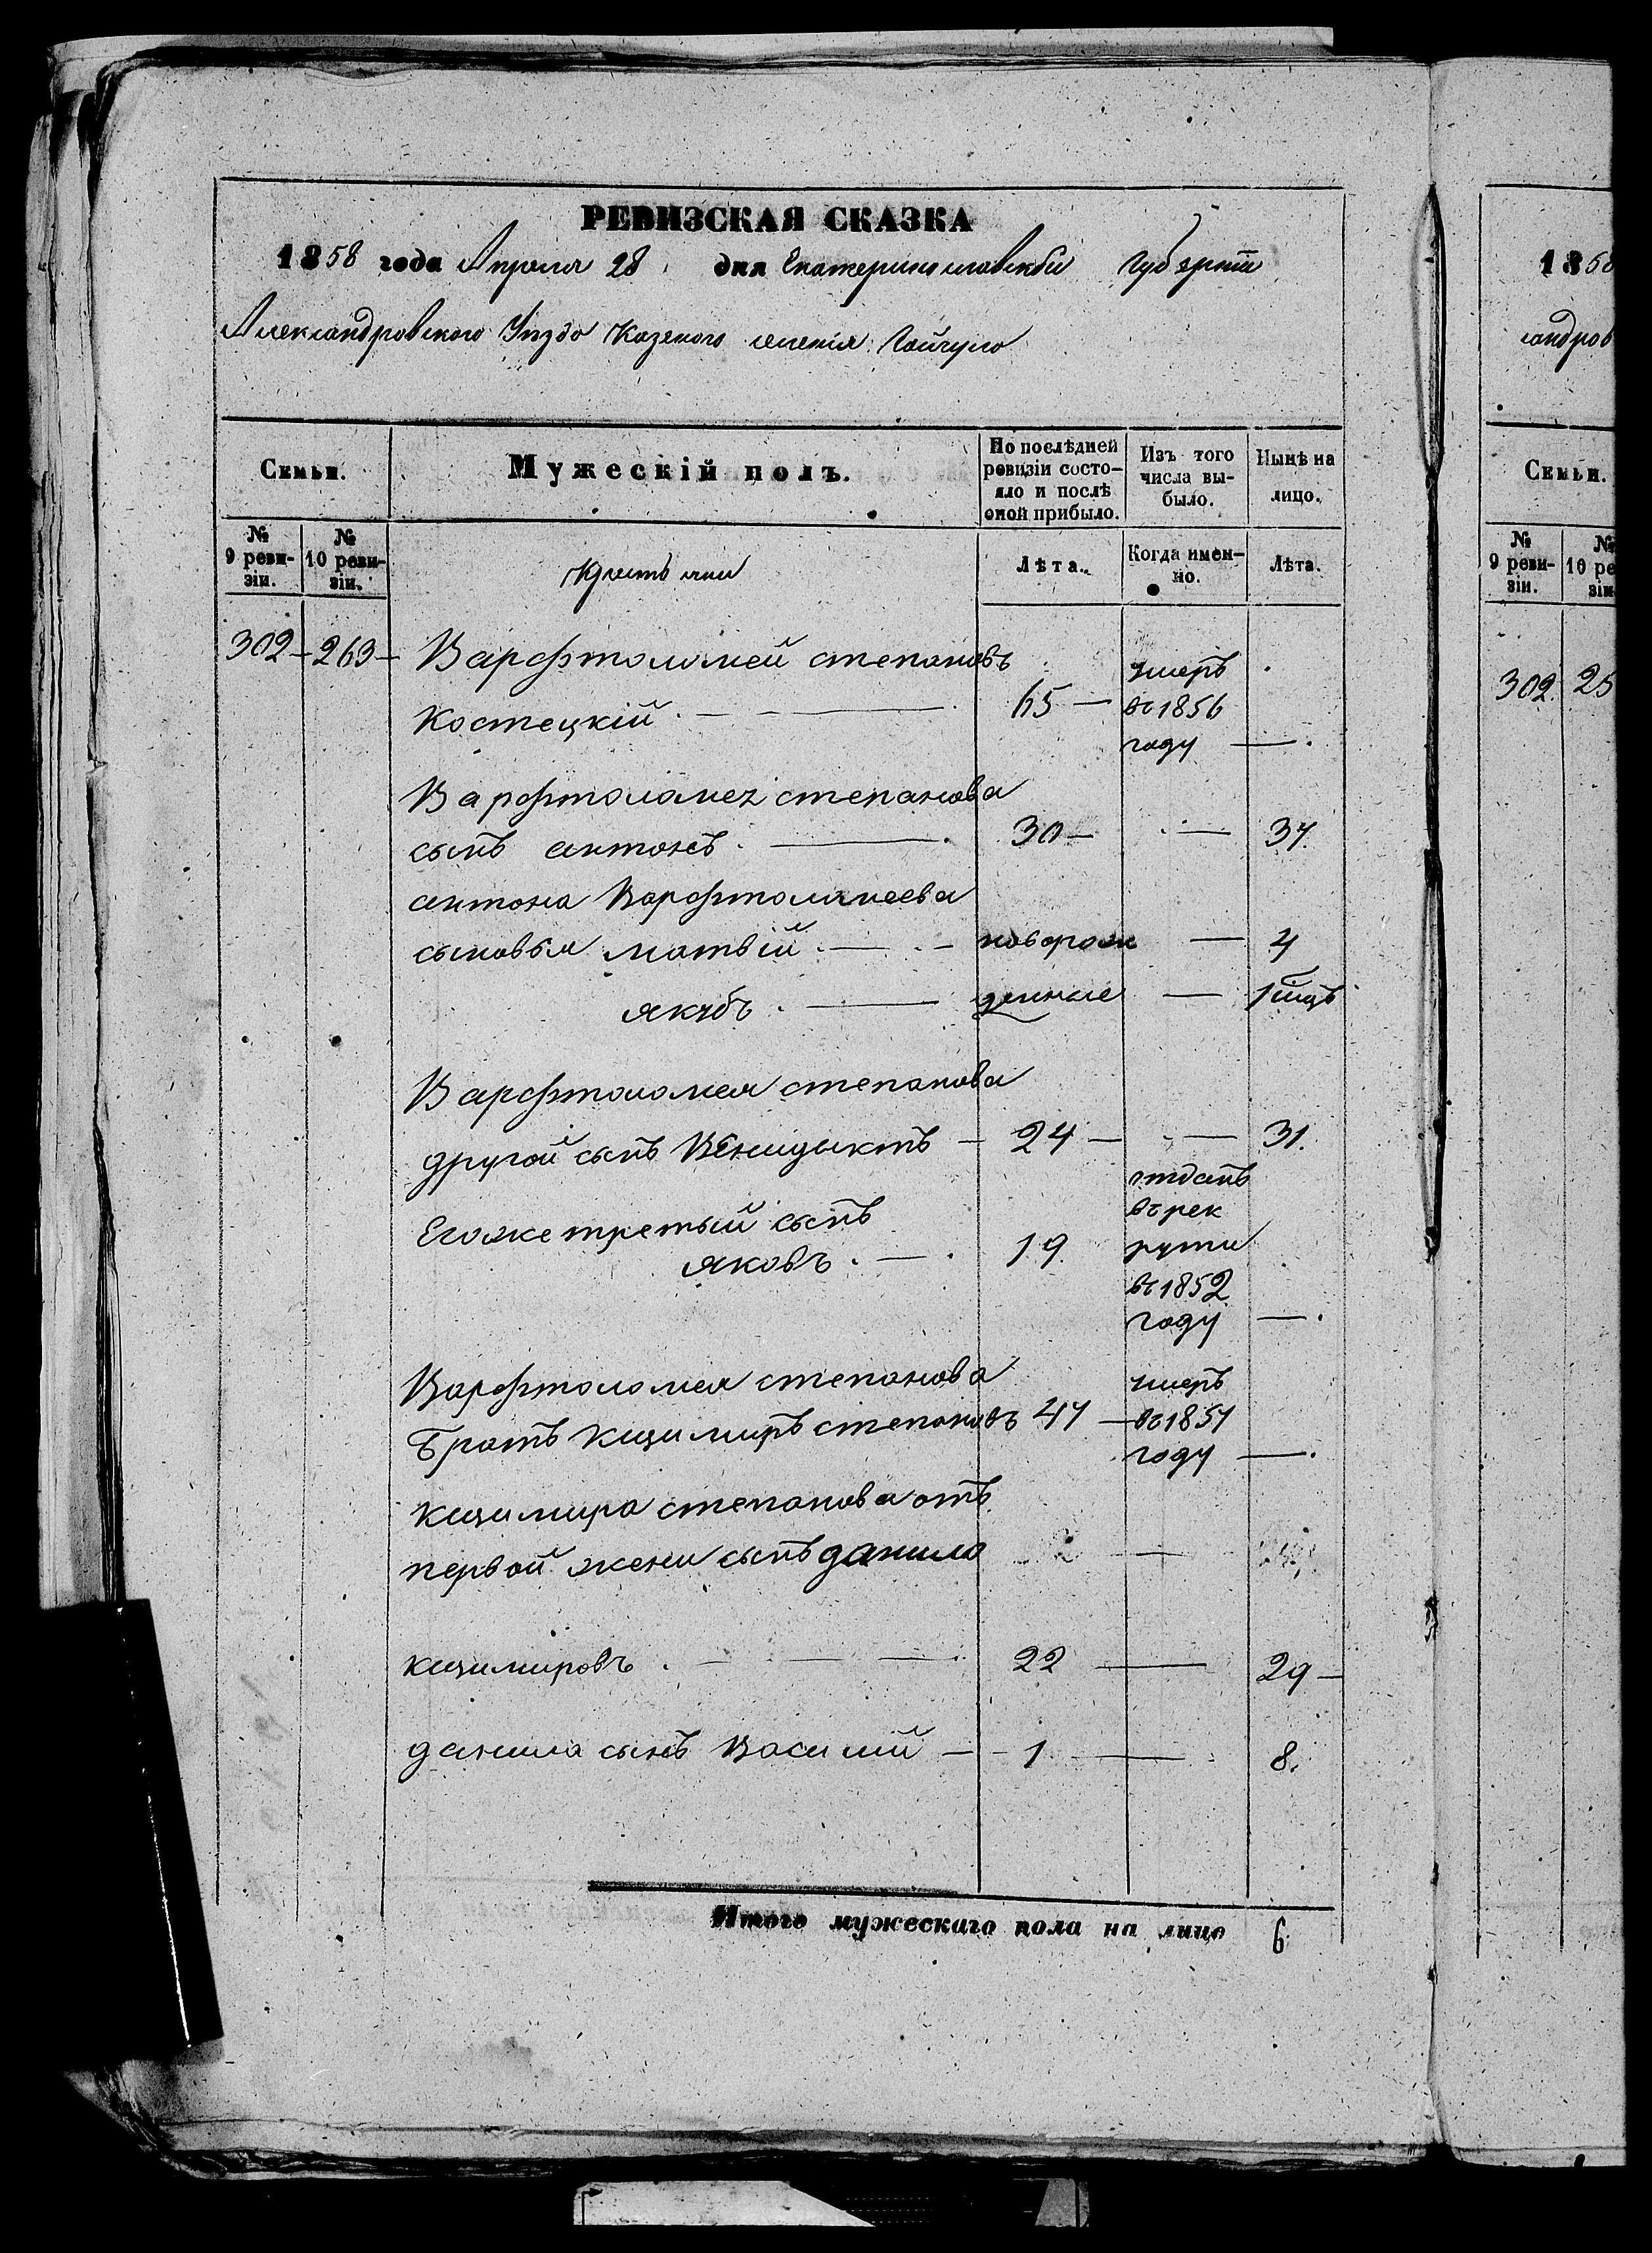 РЕВИЗСКАЯ СКАЗКА
1858 года Апреля 28 дня Екатеринославской Губернии
Александровского Уезда Казеного селения Гайчула
Семьи.
Мужескій полъ.
По послѣдней ревизіи состояло и послѣ оной прибыло.
Изъ того числа выбыло.
Нынѣ на лицо.
№ 9 ревизіи.
№ 10 ревизіи.
Крестьяни
Лѣта.
Когда именно.
Лѣта.
302 – 263 – Варфтоломей степановъ
Костецкій. – 65 – умеръ въ 1856 году –.
Варфтоломея степанова
сынъ антонъ. – 30 – – 37.
антона Варфтоломеева
сыновья матвій. – новорож – 4
якубъ. – денные – 1 мцъ
Варфтоломея степанова
другой сынъ Венидыктъ – 24 – – 31.
Егоже третый сынъ
яковъ. – 19. отданъ въ рек рути въ 1852 году –.
Варфтоломея степанова
Братъ Кцимиръ степановъ 47 – умеръ въ 1857 году –.
кцимира степанова отъ
первой жени сынъ данило –
кцимировъ. – 22 – 29 –
данила сынъ Василій – 1 – 8.
Итого мужескаго пола на лицо 6
1858
андров
Семьи.
№ 9 ревизіи.
№ 10 ре
зіи
302. 25